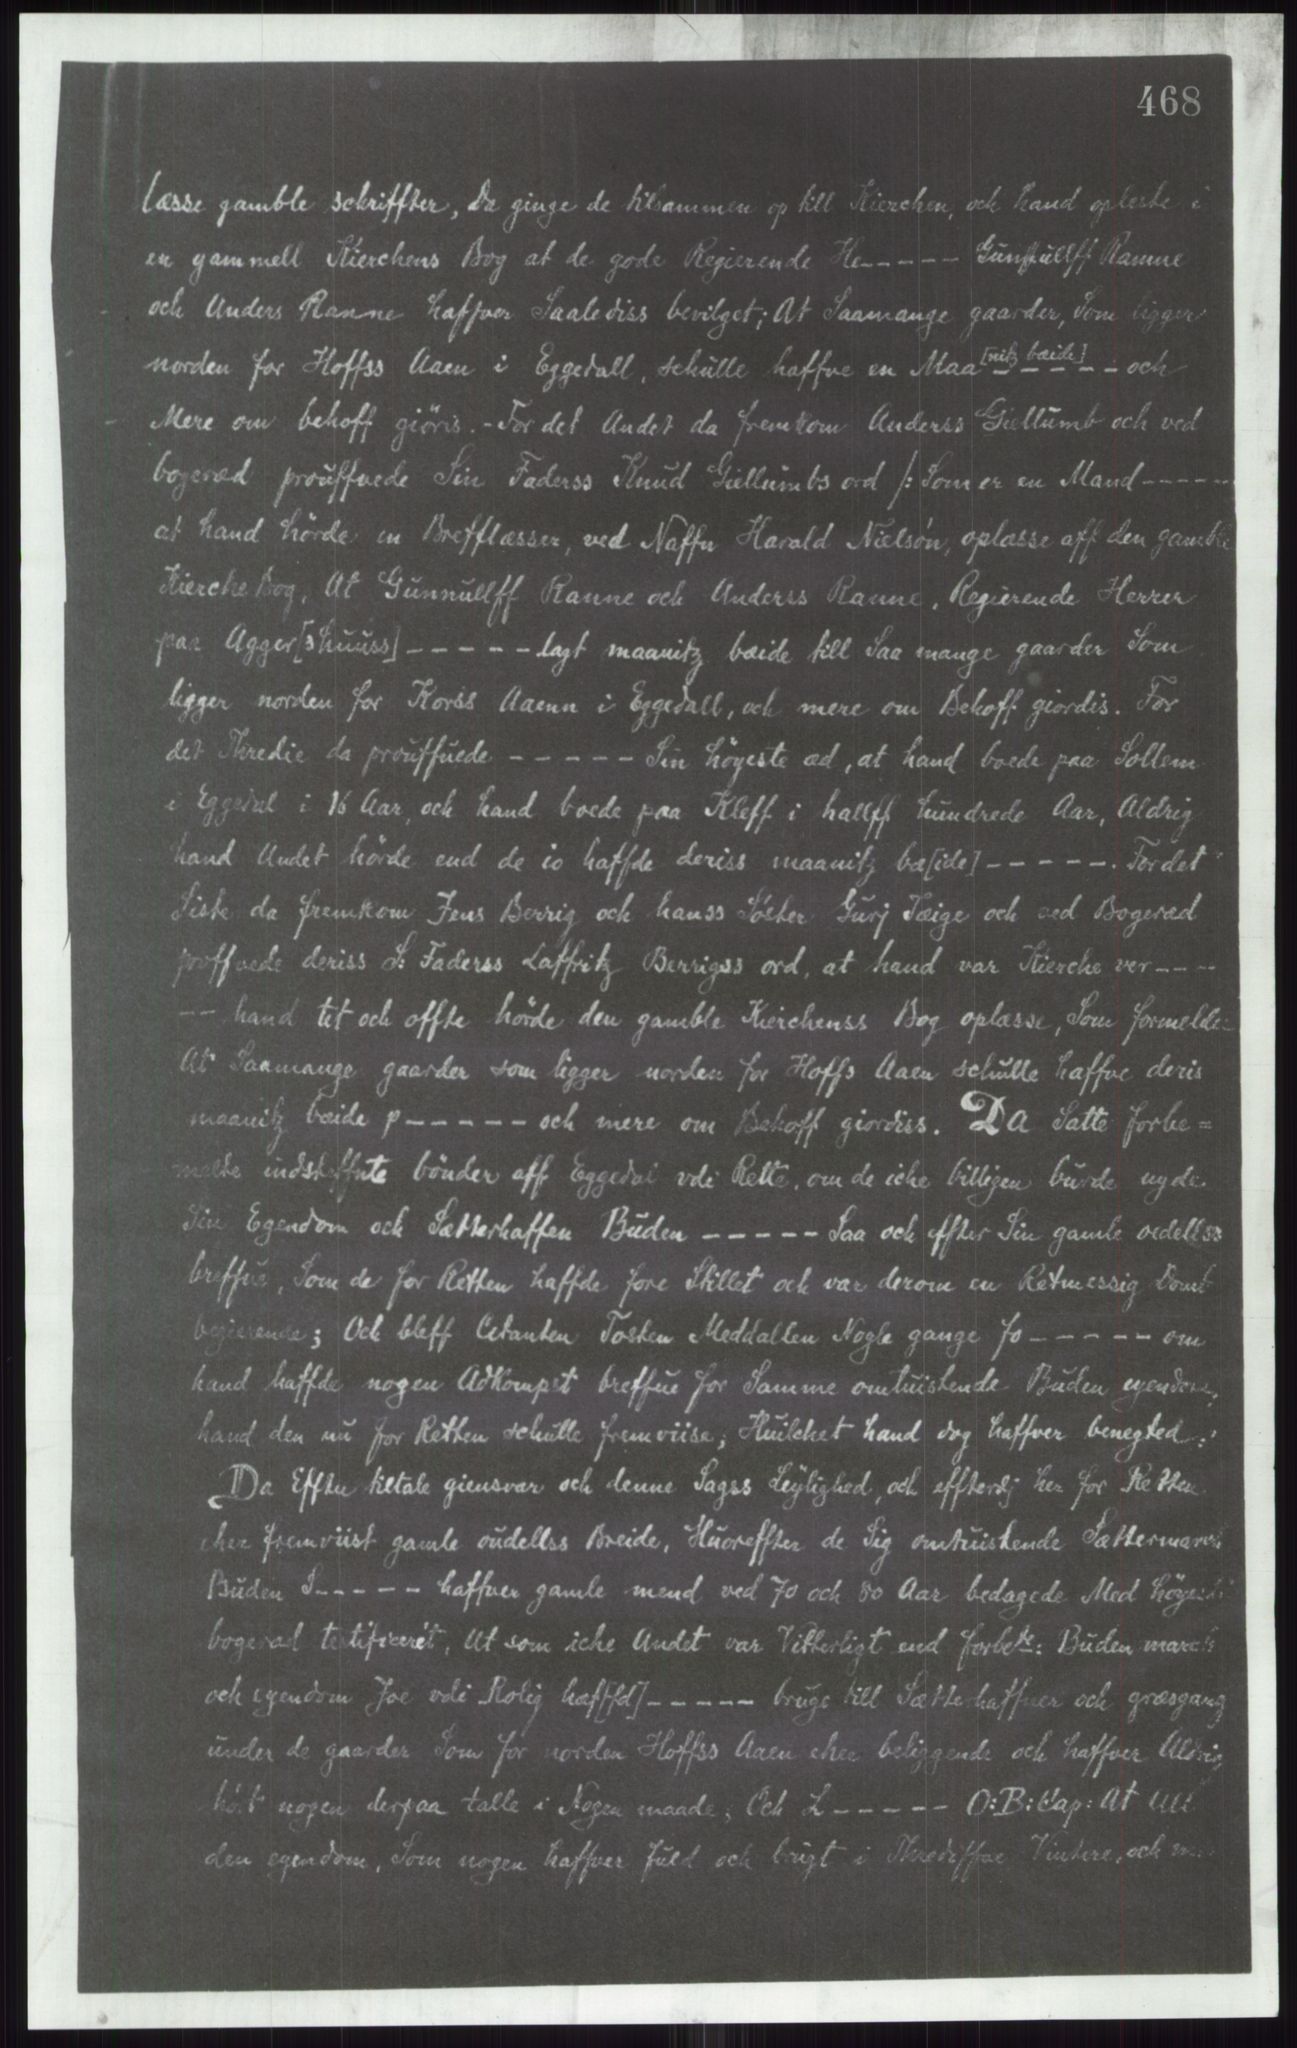 468
læsse gamble schriffter, Da ginge de tilsammen op till Kierchen, och hand opleste i
en gammell Kierchens Bog at de gode Regierende He----- Gunnullff Ranne
och Anders Ranne haffver Saalediss bevilget; At Saamange gaarder, Som ligger
norden for Hoffss Aaen i Eggedall, schulle haffve en Maa[nitz bæide]----- och
Mere om behoff giöris. - For det Andet da fremkom Anderss Giellumb och ved
bogeræd prouffvede Sin Faderss Knud Giellumbs ord /: Som er en Mand -----
at hand hörde en Brefflæsser, ved Naffn Harald Nielsön, oplæsse aff den gamble
Kierche Bog, At Gunnullff Ranne och Anderss Ranne, Regierende Herrer
paa Agger[shuuss] ----- lagt maanitz bæide till Saa mange gaarder Som
ligger norden for Korss Aaenn i Eggedall, och mere om Behoff giordis. For
det Thredie da prouffuede ----- Sin höyeste æd, at hand boede paa Sollem
i Eggedal i 16 Aar, och hand boede paa Kleff i hallff hundrede Aar, Aldrig
hand Andet hörde end de io haffde deriss maanitz bæ[ide] -----. For det
Siste da fremkom Jens Berrig och hanss Söster Gurj Tæige och ved Bogeræd
proffvede deriss S: Faderss Laffritz Berrigss ord, at hand var Kierche ver----
-- hand tit och offte hörde den gamble Kierchenss Bog oplæsse, Som formelde-
At Saamange gaarder som ligger norden for Hoffs Aaen schulle haffve deris
maanitz bæide p----- och mere om Behoff giordiss. Da Satte forbe=
melte indsteffnte bönder aff Eggedal vdi Rette, om de iche billigen burde nyde
Sin Egendom och Sætterhaffen Buden ----- Saa och effter Sin gamle oedellss
breffue, Som de for Retten haffde fore Stillet och var derom en Retmessig Domb
begierende; Och bleff Citanten Tosten Meddallen Nogle gange fo----- om
hand haffde nogen Adkompst breffue for Samme omtuistende Buden eyendom,
hand den nu for Retten schulle fremviise; Huilchet hand dog haffver benegted:
Da Effter tiltale giensvar och denne Sagss Leylighed, och effterdj her for Retten
eher fremviist gamle oudellss Breide, Huoreffter de Sig omtuistende Sættermarch
Buden S----- haffver gamle mend ved 70 och 80 Aar bedagede Med höyeste
bogeræd testificerét, At som iche Andet var Vitterligt end forbete: Buden march
och eyendom Joe vdi Rolig hæf[fd] ----- bruge till Sætterhaffner och græsgang
under de gaarder Som for norden Hoffss Aaen eher beliggende och haffver Aldrig
hört nogen derpaa talle i Nogen maade; Och L----- O:B: Cap: At All
den eyendom, Som nogen haffver fuld och brugt i Thrediffve Vintere, och